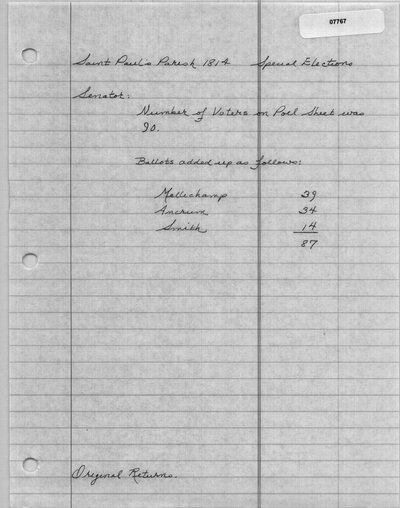 07767
Saint Paul's Parish 1814 Special Elections
Senator:
Number of Voters on Poll Sheet was
90.
Ballots added up as follows:
Mellichamp 39
Ancrum 34
Smith 14
87
Original Returns.